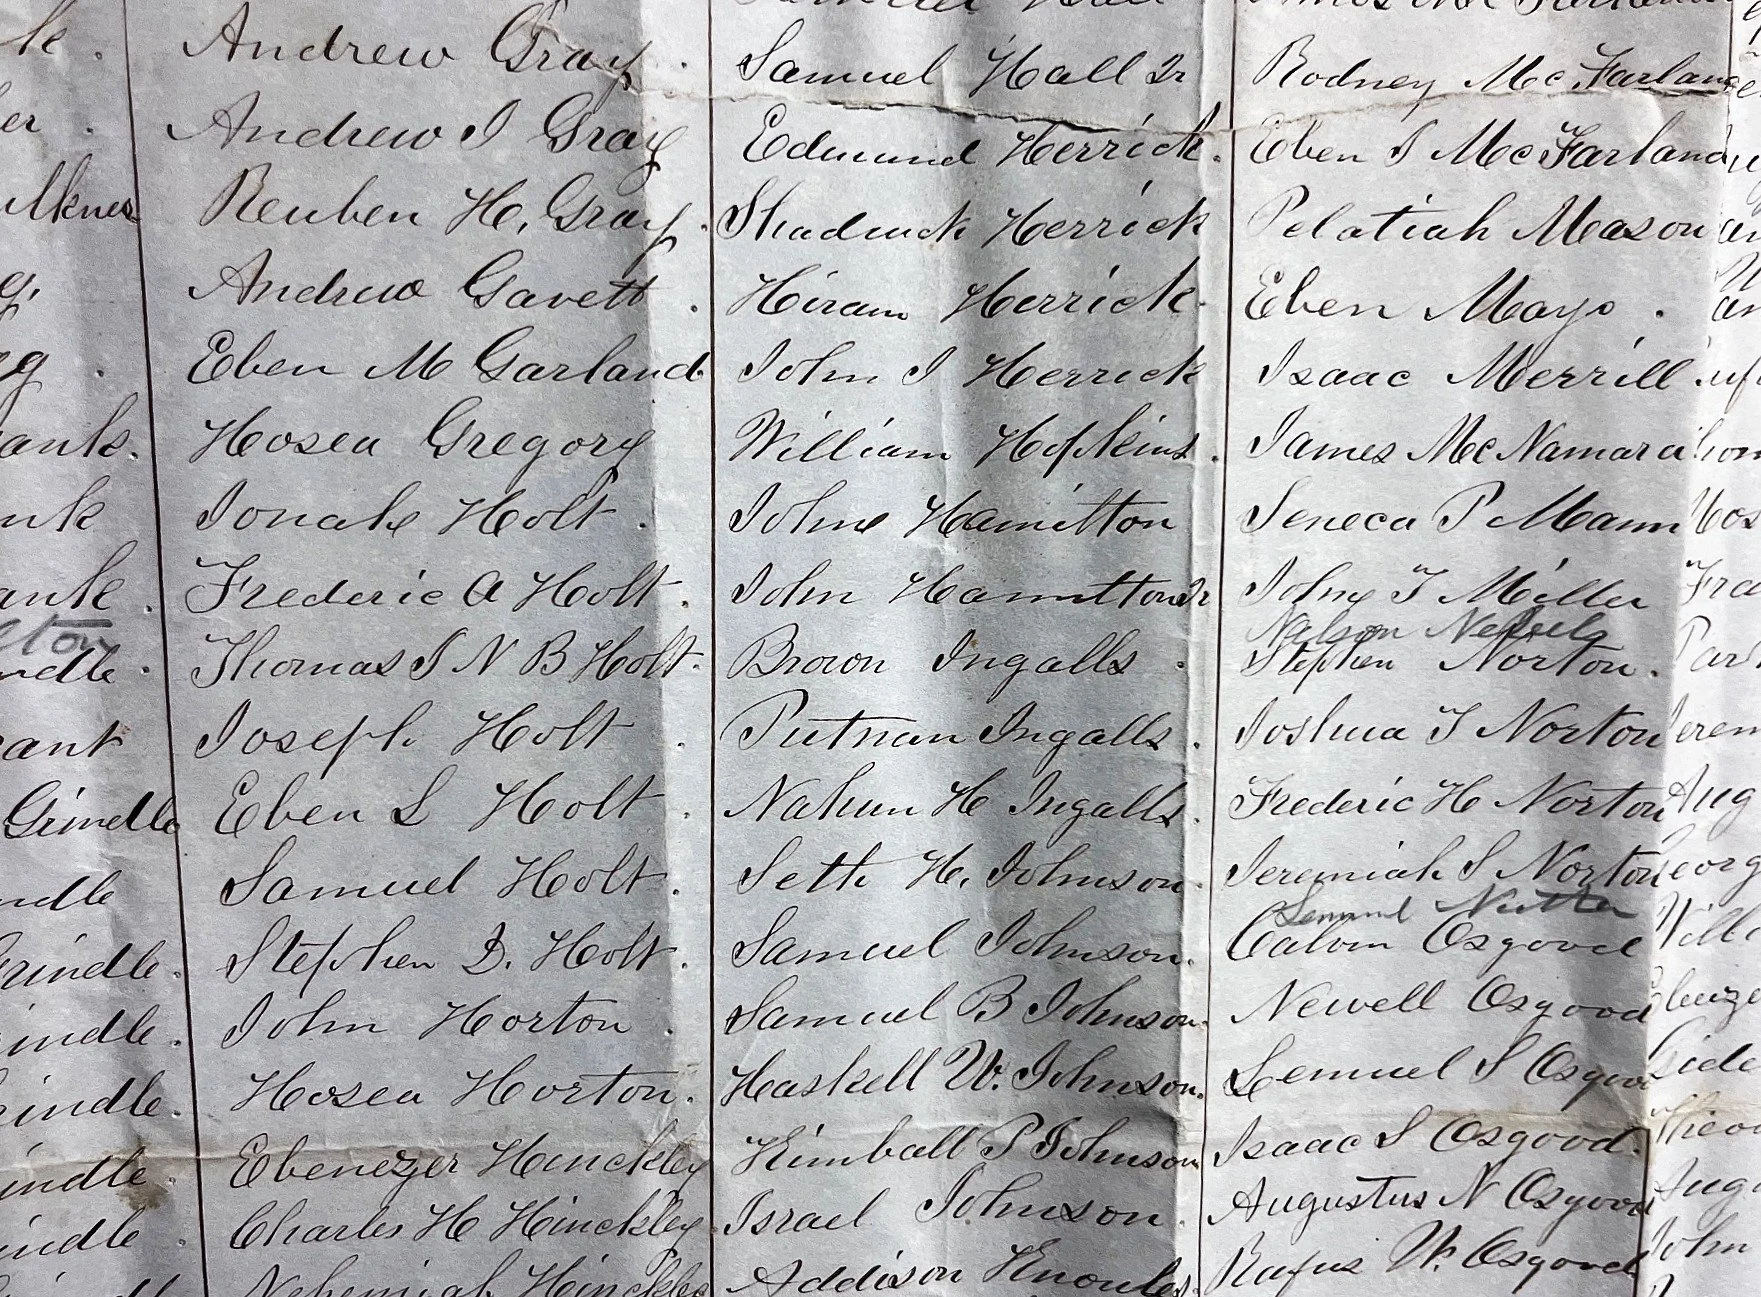 k.
Andrew Gray.
Andrew J Gray
Reuben H. Gray.
Andrew Gavett.
Eben M Garland
Hosea Gregory
Jonah Holt.
Frederic A Holt.
Thomas J N B Holt.
Joseph Holt.
Eben S Holt.
Samuel Holt.
Stephen D. Holt.
John Horton.
Hosea Horton.
Ebenezer Hinckley
Charles H Hinckley.
Nehemiah Hinckley
Samuel Hall Jr
Edmund Herrick.
Shadrack Herrick
Hiram Herrick.
John J Herrick
William Hopkins.
John Hamilton
John Hamilton Jr
Brown Ingalls.
Putnam Ingalls.
Nahum H Ingalls.
Seth H. Johnson.
Samuel Johnson.
Samuel B Johnson.
Haskell W. Johnson.
Kimball P Johnson
Israel Johnson.
Addison Knowles.
Rodney McFarland
Eben S McFarland
Pelatiah Mason
Eben Mayo.
Isaac Merrill
James McNamara
Seneca P Mann
John F Miller
Stephen Norton.
Joshua T Norton
Frederic H Norton
Jeremiah S Norton
Calvin Osgood
Newell Osgood
Lemuel S Osgood
Isaac S Osgood.
Augustus N Osgood
Rufus W. Osgood
Grindle
Aug
John